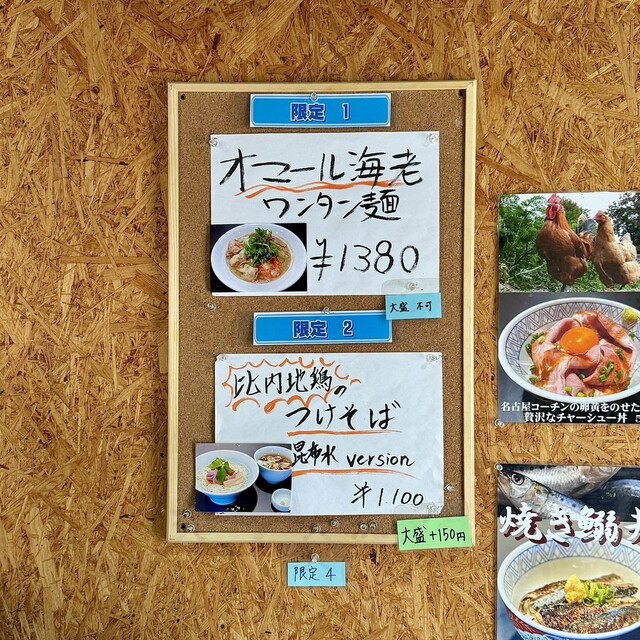 限定 1
オマール海老
ワンタン麺
¥1380
大盛 不可
限定 2
比内地鶏の
つけそば
昆布水 version
¥1100
大盛+150円
限定 4
名古屋コーチンの卵黄をのせた
贅沢なチャーシュー丼
焼き鰯